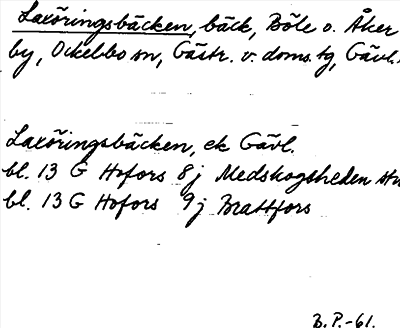 Laxöringsbäcken, bäck, Böle o. Åker
by, Ockelbo sn, Gästr. v. doms. tg, Gävl.
Laxöringsbäcken, ek Gävl.
bl. 13 G Hofors 8j Medskogsheden
bl. 13 G Hofors 9j Brattfors
B.P.-61.